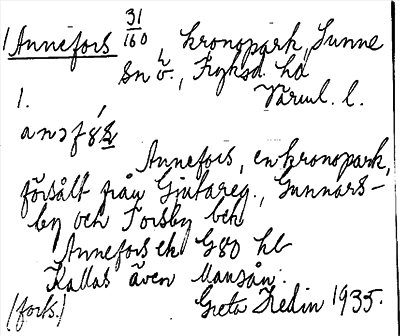 1 Annefors 31/160, kronopark, Sunne
sn o., Fryksd. hd
1. Värml. l.
Annefors, en kronopark,
försålt från Gjutareg., Gunnars-
by och Forsby bek
Annefors ek G80 hb
Kallas även Mansån.
(forts.) Greta Hedin 1935.